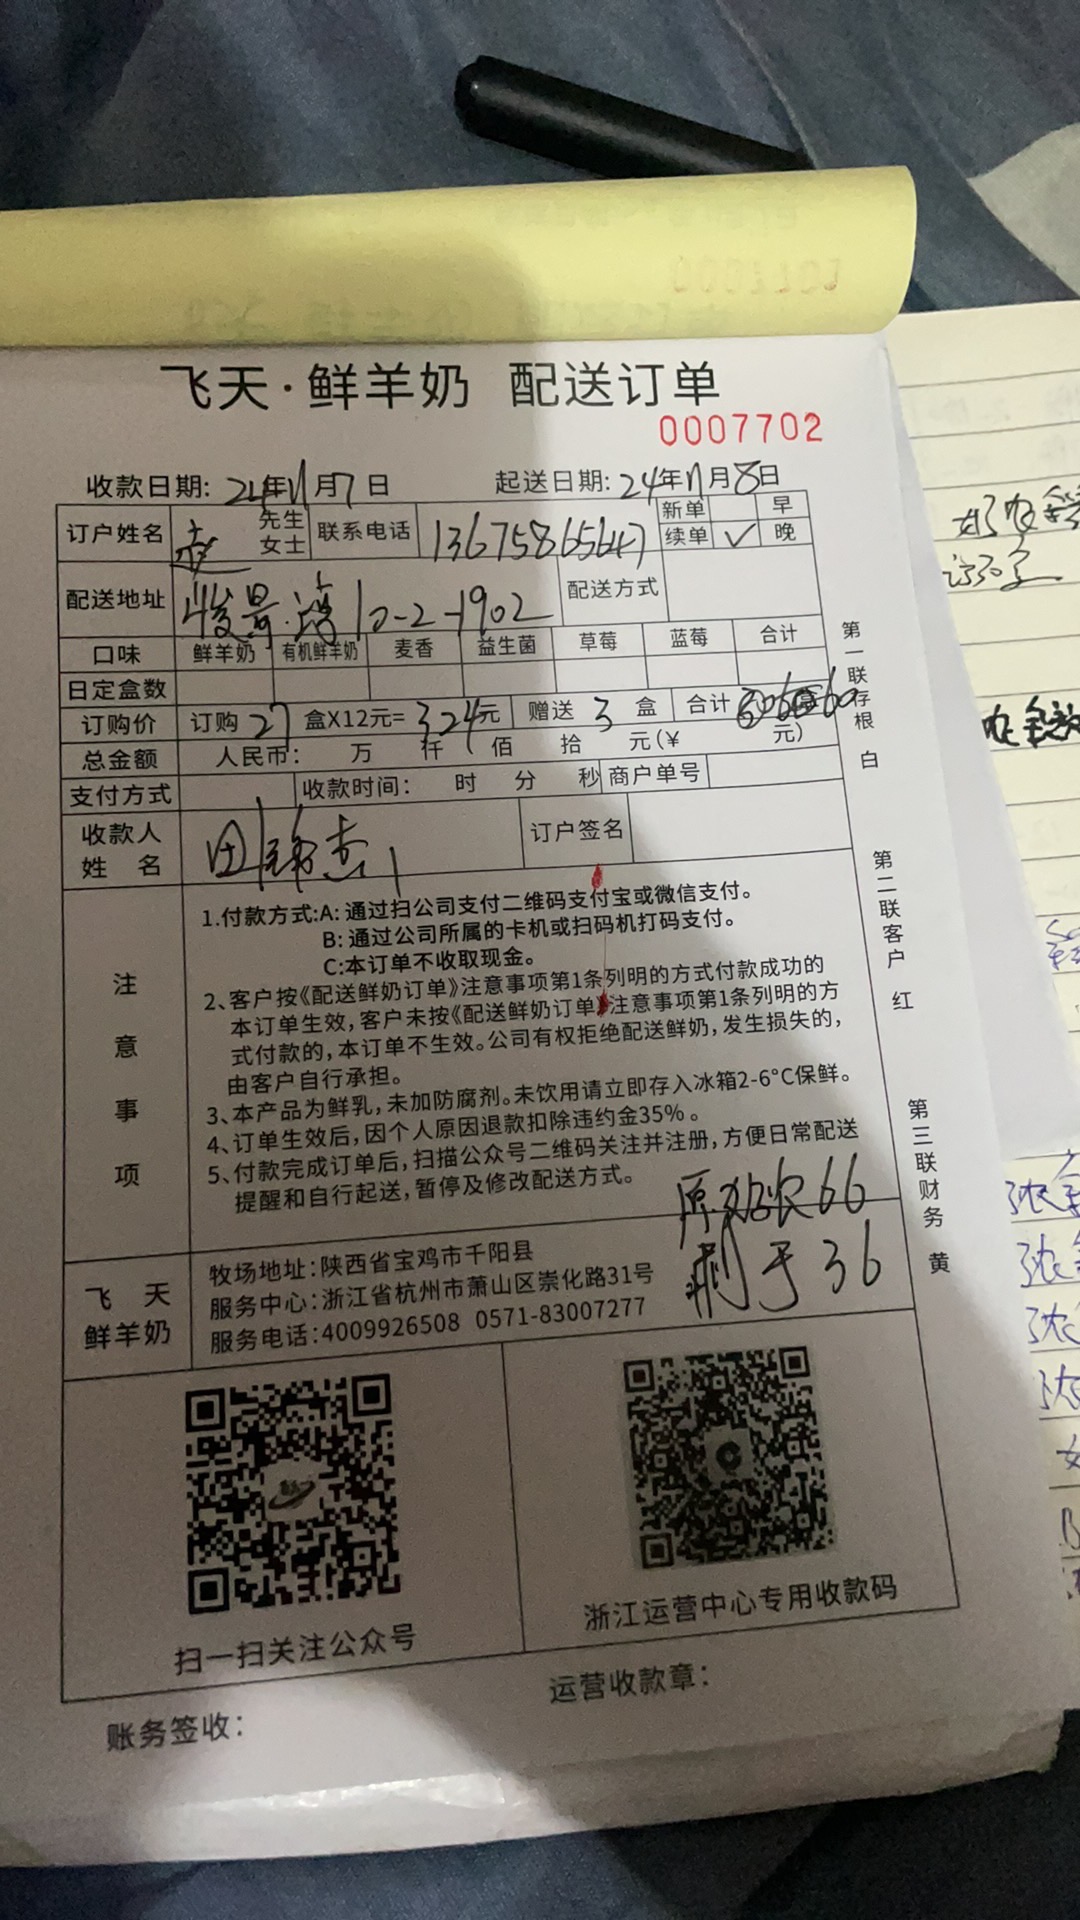 飞天·鲜羊奶 配送订单
0007702
收款日期: 24年11月7日 起送日期: 24年11月8日
订户姓名 赵 先生 女士 联系电话 13675865647 新单 早 续单 ✓ 晚
配送地址 峻景湾10-2-1902 配送方式
口味 鲜羊奶 有机鲜羊奶 麦香 益生菌 草莓 蓝莓 合计
日定盒数
订购价 订购 27 盒X12元= 324元 赠送 3 盒 合计 元)
总金额 人民币: 万 仟 佰 拾 元(¥
支付方式 收款时间: 时 分 秒 商户单号
收款人姓名 田 订户签名
注意事项
1.付款方式:A: 通过扫公司支付二维码支付宝或微信支付。
B: 通过公司所属的卡机或扫码机打码支付。
C:本订单不收取现金。
2、客户按《配送鲜奶订单》注意事项第1条列明的方式付款成功的
本订单生效,客户未按《配送鲜奶订单》注意事项第1条列明的方
式付款的,本订单不生效。公司有权拒绝配送鲜奶,发生损失的,
由客户自行承担。
3、本产品为鲜乳,未加防腐剂。未饮用请立即存入冰箱2-6°C保鲜。
4、订单生效后,因个人原因退款扣除违约金35%。
5、付款完成订单后,扫描公众号二维码关注并注册,方便日常配送
提醒和自行起送,暂停及修改配送方式。
原 66
剩于36
飞天鲜羊奶
牧场地址:陕西省宝鸡市千阳县
服务中心:浙江省杭州市萧山区崇化路31号
服务电话:4009926508 0571-83007277
扫一扫关注公众号
浙江运营中心专用收款码
账务签收:
运营收款章:
第一联存根 白
第二联客户 红
第三联财务 黄